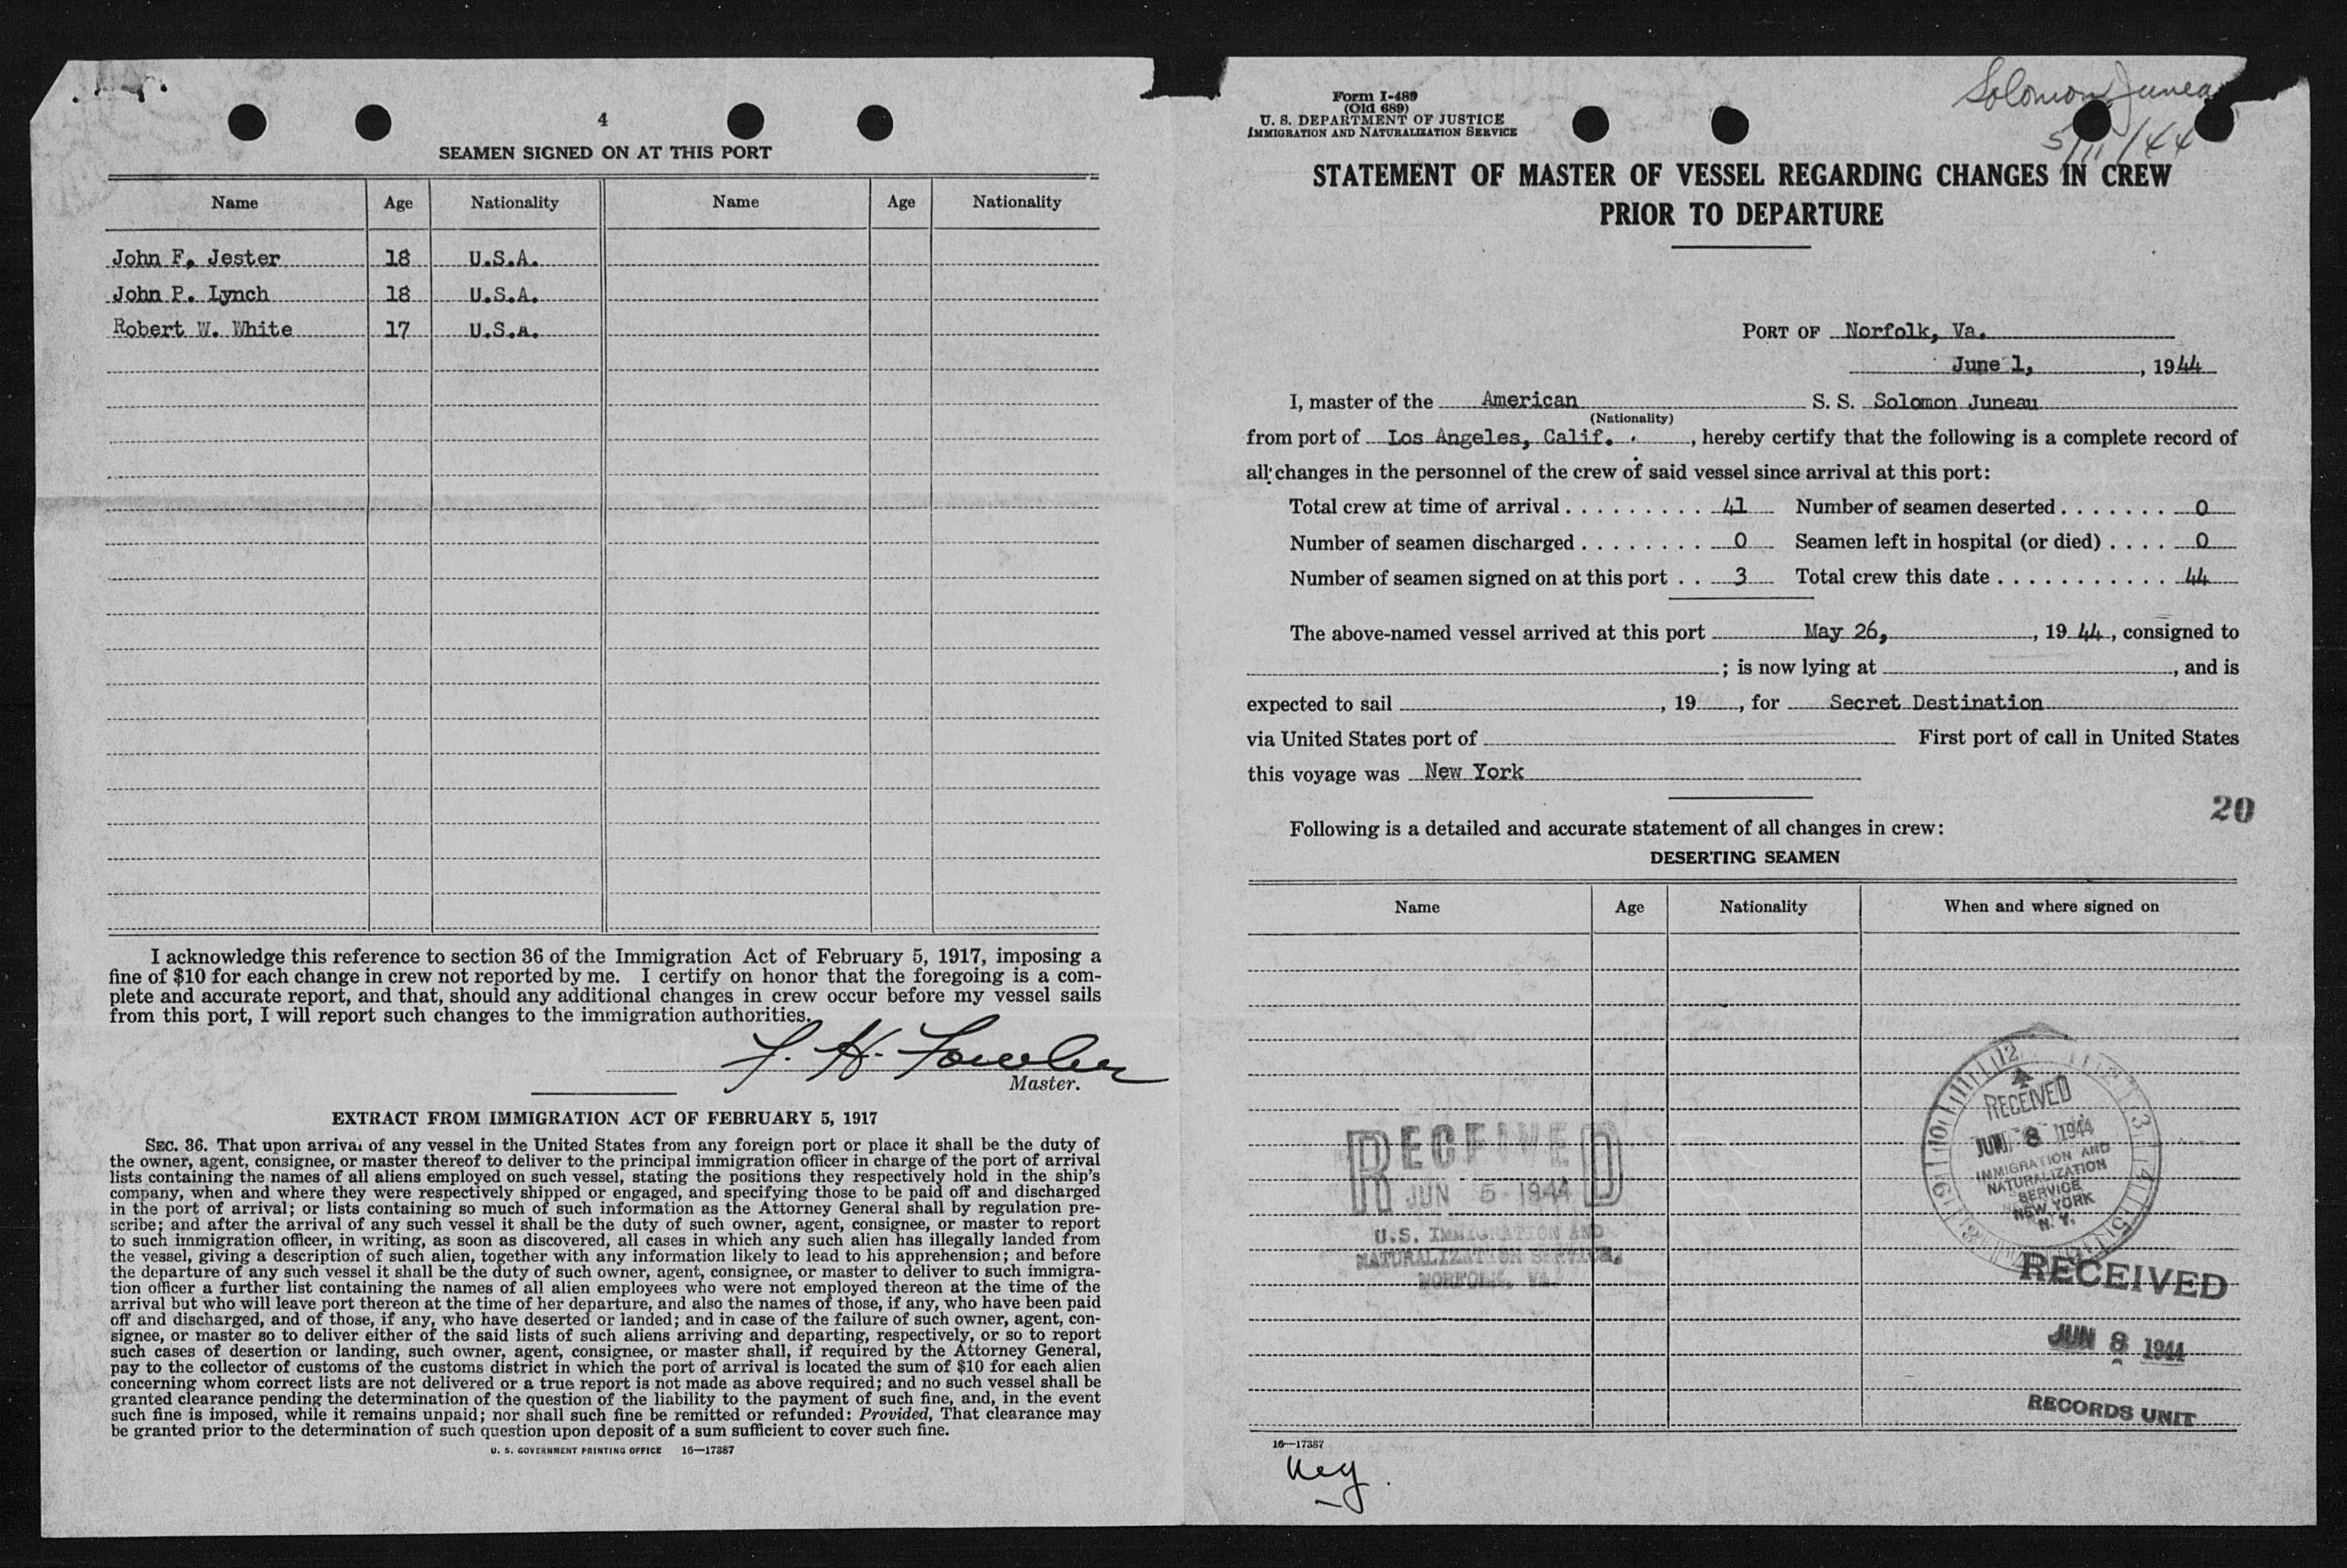 4
SEAMEN SIGNED ON AT THIS PORT
Name Age Nationality Name Age Nationality
John F. Jester 18 U.S.A.
John P. Lynch 18 U.S.A.
Robert W. White 17 U.S.A.
I acknowledge this reference to section 36 of the Immigration Act of February 5, 1917, imposing a
fine of $10 for each change in crew not reported by me. I certify on honor that the foregoing is a com-
plete and accurate report, and that, should any additional changes in crew occur before my vessel sails
from this port, I will report such changes to the immigration authorities.
Fowler
Master.
EXTRACT FROM IMMIGRATION ACT OF FEBRUARY 5, 1917
SEC. 36. That upon arrival of any vessel in the United States from any foreign port or place it shall be the duty of
the owner, agent, consignee, or master thereof to deliver to the principal immigration officer in charge of the port of arrival
lists containing the names of all aliens employed on such vessel, stating the positions they respectively hold in the ship's
company, when and where they were respectively shipped or engaged, and specifying those to be paid off and discharged
in the port of arrival; or lists containing so much of such information as the Attorney General shall by regulation pre-
scribe; and after the arrival of any such vessel it shall be the duty of such owner, agent, consignee, or master to report
to such immigration officer, in writing, as soon as discovered, all cases in which any such alien has illegally landed from
the vessel, giving a description of such alien, together with any information likely to lead to his apprehension; and before
the departure of any such vessel it shall be the duty of such owner, agent, consignee, or master to deliver to such immigra-
tion officer a further list containing the names of all alien employees who were not employed thereon at the time of the
arrival but who will leave port thereon at the time of her departure, and also the names of those, if any, who have been paid
off and discharged, and of those, if any, who have deserted or landed; and in case of the failure of such owner, agent, con-
signee, or master so to deliver either of the said lists of such aliens arriving and departing, respectively, or so to report
such cases of desertion or landing, such owner, agent, consignee, or master shall, if required by the Attorney General,
pay to the collector of customs of the customs district in which the port of arrival is located the sum of $10 for each alien
concerning whom correct lists are not delivered or a true report is not made as above required; and no such vessel shall be
granted clearance pending the determination of the question of the liability to the payment of such fine, and, in the event
such fine is imposed, while it remains unpaid; nor shall such fine be remitted or refunded: Provided, That clearance may
be granted prior to the determination of such question upon deposit of a sum sufficient to cover such fine.
U. S. GOVERNMENT PRINTING OFFICE 16—17387
Form I-489
(Old 689)
U. S. DEPARTMENT OF JUSTICE
IMMIGRATION AND NATURALIZATION SERVICE
Solomon Juneau
5/11/44
STATEMENT OF MASTER OF VESSEL REGARDING CHANGES IN CREW
PRIOR TO DEPARTURE
PORT OF Norfolk, Va.
June 1, , 1944
I, master of the American S. S. Solomon Juneau
(Nationality)
from port of Los Angeles, Calif. , hereby certify that the following is a complete record of
all changes in the personnel of the crew of said vessel since arrival at this port:
Total crew at time of arrival . . . . . . . . . . 41 Number of seamen deserted . . . . . . . 0
Number of seamen discharged . . . . . . . . 0 Seamen left in hospital (or died) . . . . 0
Number of seamen signed on at this port . . 3 Total crew this date . . . . . . . . . . . 44
The above-named vessel arrived at this port May 26, , 19 44 , consigned to
; is now lying at , and is
expected to sail , 19 , for Secret Destination
via United States port of First port of call in United States
this voyage was New York
20
Following is a detailed and accurate statement of all changes in crew:
DESERTING SEAMEN
Name Age Nationality When and where signed on
RECEIVED
JUN 5 1944
U.S. IMMIGRATION AND
NATURALIZATION SERVICE,
NORFOLK, VA.
12 2 3 4 5 8 9 10 11
RECEIVED
JUN 8 1944
IMMIGRATION AND
NATURALIZATION
SERVICE
NEW YORK
N. Y.
RECEIVED
JUN 8 1944
RECORDS UNIT
16—17387